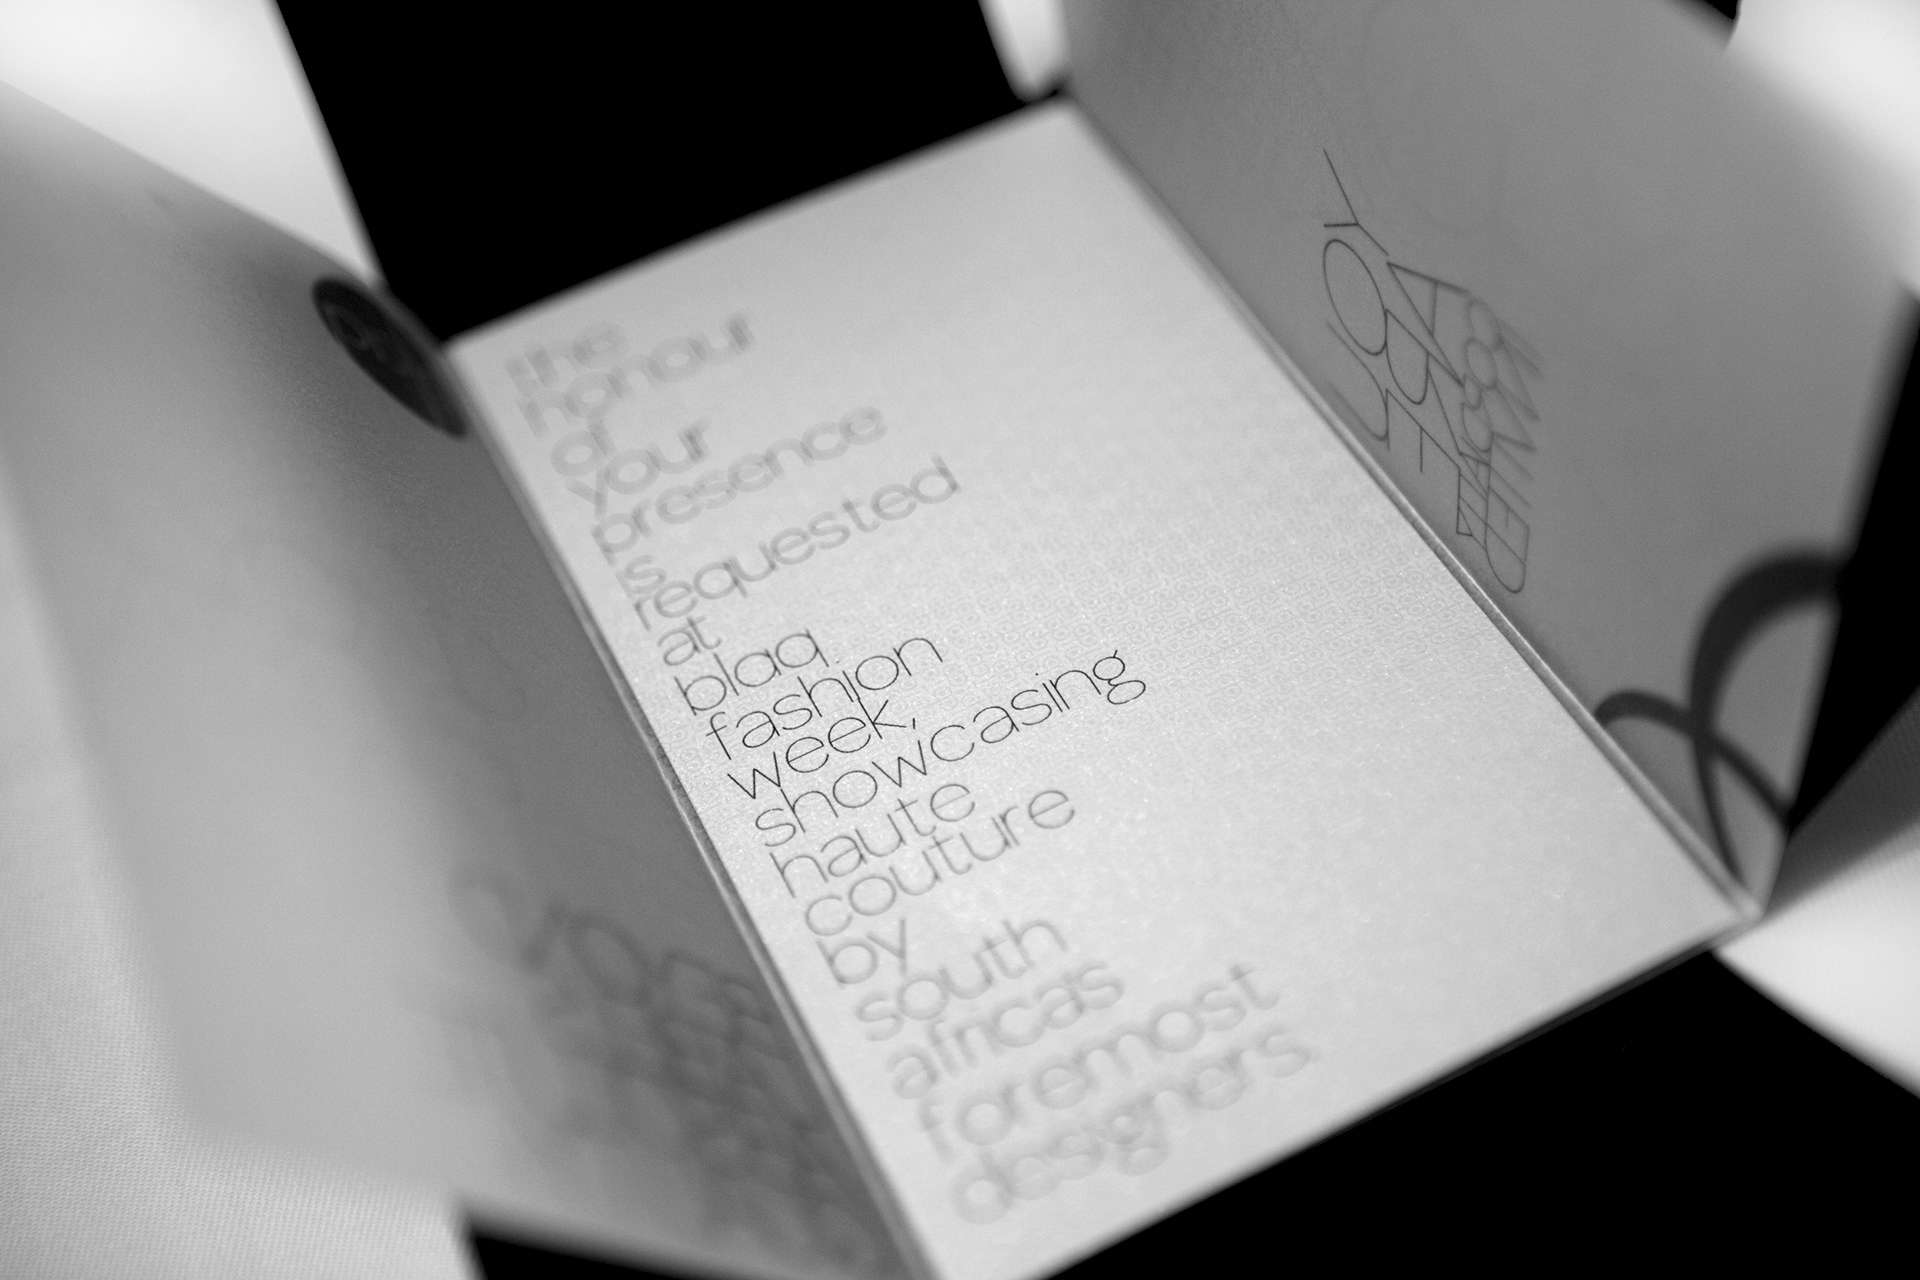 the
honour
of
your
presence
is
requested
at
blaq
fashion
week,
showcasing
haute
couture
by
south
africa's
foremost
designers.
YOU
ARE